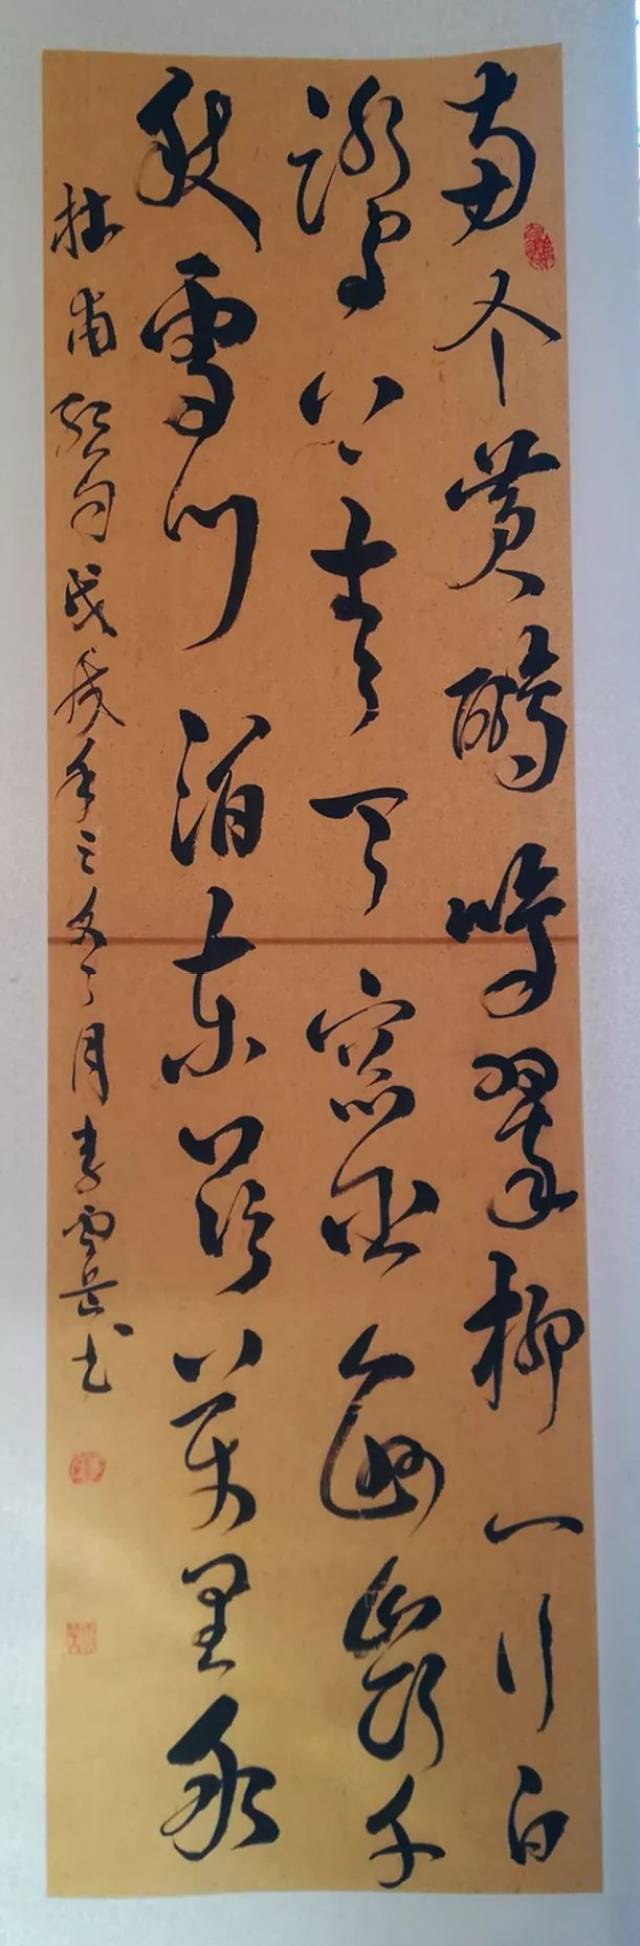 两个黄鹂鸣翠柳一行白
鹭上青天窗含西岭千
秋雪门泊东吴万里船
杜甫绝句戊戌年之冬月李云岳书